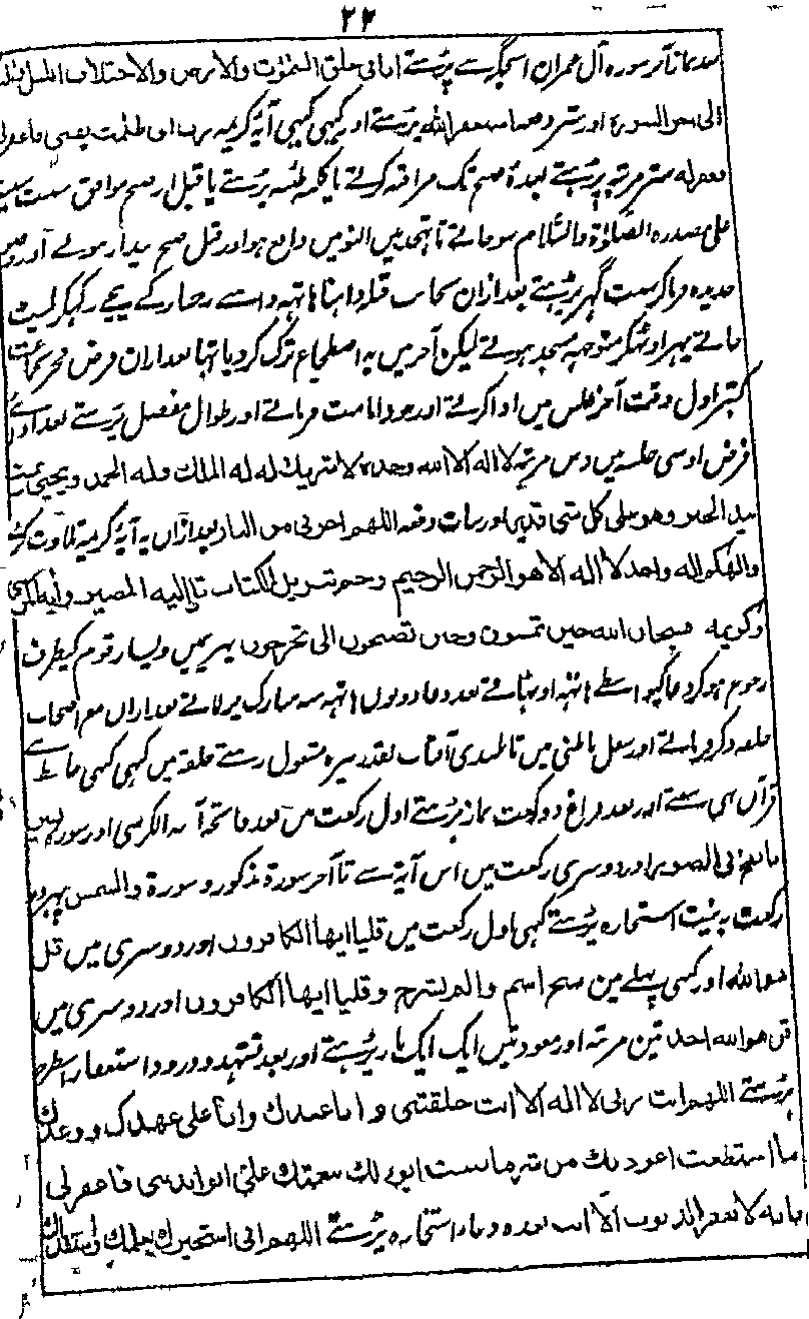 ۲۲
تا آخر سوره آل عمران اسجگہ سے پڑہتے ان فی خلق السموٰت والارض والاختلاف اللیل
الی آخر السورة اور ستر استغفر الله پڑہتے اور کبھی کبھی آیۂ کریمہ رب انی ظلمت نفسی فاغفرلی
فغفرله ستر مرتبہ پڑہتے بعدہٗ صبح تک مراقبہ کرتے یا کلمہ طیبہ پڑہتے یا قبل از صبح موافق سنت
علی مصدره الصلٰوة والسّلام سو جاتے تا تہجد بین النومین واقع ہو اور قبل صبح بیدار ہوتے اور وضو
جدیدہ فرما کر سنت گہر پڑہتے بعد ازان بجانب قبلہ داہنا ہاتہہ داہنے رخسار کے نیچے رکہکر لیٹ
جاتے پہر اوٹہکر متوجہ مسجد ہوتے لیکن آخر میں یہ اضطجاع ترک کر دیا تہا بعد ازان فرض فجر
اول وقت آخر غلس میں ادا کرتے اور خود امامت فرماتے اور طوال مفصل پڑہتے بعد ادائے
فرض اوسی جلسہ میں دس مرتبہ لا اله الا الله وحده لا شریك له له الملك وله الحمد ویحیی
بید الخیر وهو علی کل شی قدیر اور سات دفعہ اللهم اجرنی من النار بعد ازاں یہ آیۂ کریمہ تلاوت کرتے
والهكم اله واحد لا اله الا هو الرحمن الرحیم وحم تنزیل الکتاب تا الیه المصیر وآیة الکرسی
وکریمه فسبحان الله حین تمسون وحین تصبحون الی تخرجون پہر یمین ویسار قوم کیطرف
رجوع ہو کر دعا کیواسطے ہاتہہ اوٹہاتے بعد دعا دونوں ہاتہہ مبارک پر لاتے بعد ازاں مع اصحاب
حلقہ ذکر فرماتے اور شغل باطنی میں تا بلندی آفتاب بقدر نیزہ مشغول رہتے حلقہ میں کبھی کبھی حافظ سے
قرآن بھی سنتے اور بعد فراغ دو رکعت نماز پڑہتے اول رکعت میں بعد فاتحہ آیہ الکرسی اور سورہ
فی الصور اور دوسری رکعت میں اس آیۃ سے تا آخر سورة مذکور و سورة والشمس پہر دو
رکعت بہ نیت استخارہ پڑہتے کبھی اول رکعت میں قل یا ایها الکافرون اور دوسری میں قل
هو الله اور کبھی پہلے مین سبح اسم والم نشرح وقل یا ایها الکافرون اور دوسری میں
قل هو الله احد تین مرتبہ اور معوذتین ایک ایک بار پڑہتے اور بعد تشہد و درود استغفار اسطرح
پڑہتے اللهم انت ربی لا اله الا انت خلقتنی وانا عبدك وانا علی عهدك ووعدك
ما استطعت اعوذ بك من شر ما صنعت ابوء لك بنعمتك علیّ وابوء بذنبی فاغفر لی
فانه لا یغفر الذنوب الّا انت بعده دعاء استخارہ پڑہتے اللهم انی استخیرك بعلمك واستقدرك